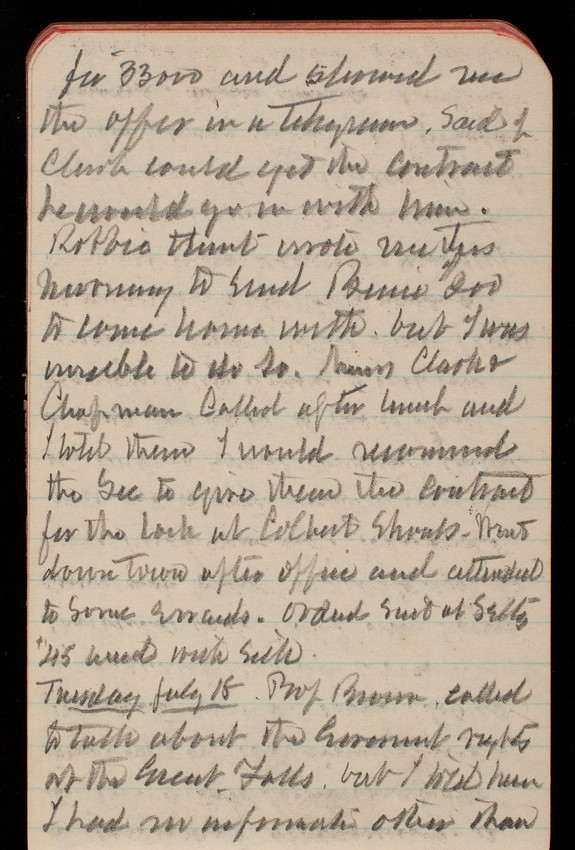 for 33000 and showed me
the offer in a telegram. Said if
Clark could get the contract
he would go in with him.
Robbie thent wrote me this
morning to send Bessie $200
to come home with. but I was
unable to do so. Clark &
Chapman Called after lunch and
I told them I would recommend
the Sec to give them the contract
for the lock at Colbert Shoals. Went
down town after office and attended
to some errands. Orderd suit at
$45 lined with silk.
Tuesday July 18. Prof Brown. called
to talk about the Goverment rights
at the Great Falls. but I told him
I had no informati other than